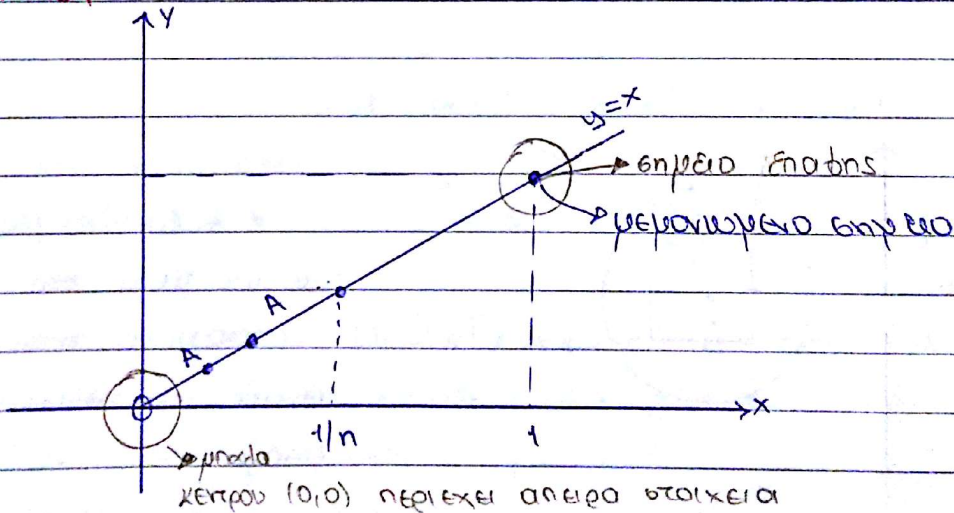 y
y=x
σημειο επαφης
μεμονωμενο σημειο
A
A
x
1/n
1
μπαλα
κεντρου (0,0) περιεχει απειρα στοιχεια